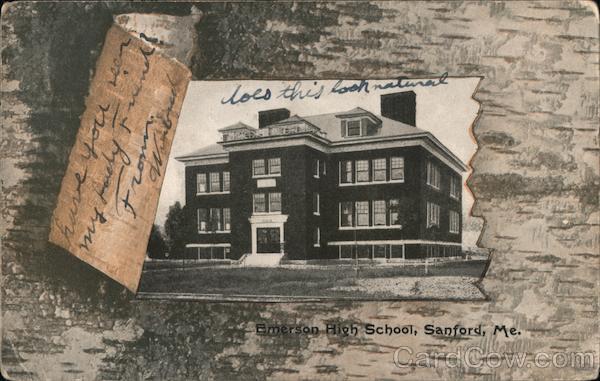 does this look natural
have you seen
my lady friend
from
Emerson High School, Sanford, Me.
CardCow.com